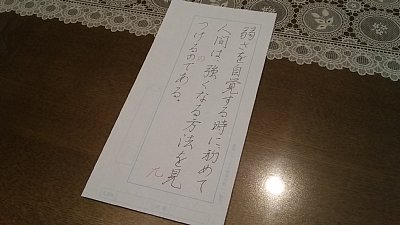 弱さを自覚する時に初めて
人間は、強くなる方法を見
つけるのである。